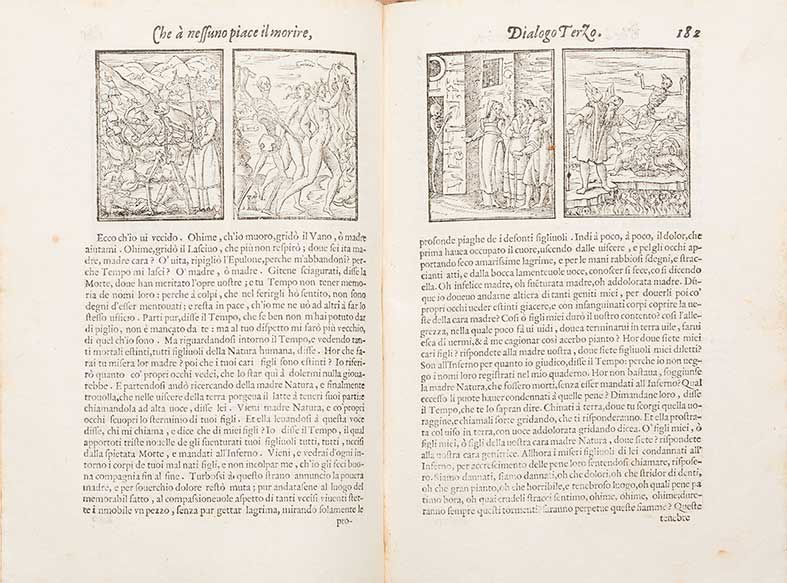 Che à nessuno piace il morire,
Ecco ch'io ui vccido. Ohime, ch'io muoro, gridò il Vano, ò madre
aiutami. Ohime, gridò il Lasciuo, che più non respiro; doue sei ita ma-
dre, madre cara? O' uita, ripigliò l'Epulone, perche m'abbandoni? per
che Tempo mi lasci? O' madre, ò madre. Gitene sciagurati, disse la
Morte, doue han meritato l'opre uostre; e tu Tempo non tener memo-
ria de nomi loro: perche à colpi, che nel ferirgli hò sentito, non sono
degni d'esser mentouati; e resta in pace, ch'io me ne uò ad altri à far lo
stesso ufficio. Parti pur, disse il Tempo, che se ben non m'hai potuto dar
di piglio, non è mancato da te: ma al tuo dispetto mi farò più vecchio,
di quel ch'io sono. Ma riguardandosi intorno il Tempo, e vedendo tan-
ti mortali estinti, tutti figliuoli della Natura humana, disse. Hor che fa-
rai tu misera lor madre? poi che i tuoi cari figli sono estinti? Io riferi-
rò quanto co' propri occhi vedei, che lo star quì à dolermi nulla gioua-
rebbe. E partendosi andò ricercando della madre Natura, e finalmente
trouolla, che nelle uiscere della terra porgeua il latte à teneri suoi parti:e
chiamandola ad alta uoce, disse lei. Vieni madre Natura, e co' propri
occhi scuopri lo sterminio di tuoi figli. Et ella leuandosi à questa voce
disse, chi mi chiama, e dice che di miei figli? Io disse il Tempo, il qual
apportoti triste nouelle de gli suenturati tuoi figliuoli tutti, tutti, uccisi
dalla spietata Morte, e mandati all'Inferno. Vieni, e vedrai d'ogni in-
torno i corpi de tuoi mal nati figli, e non incolpar me, ch'io gli feci buo-
na compagnia fin al fine. Turbossi à questo strano annuncio la pouera
madre, e per souerchio dolore restò muta; pur andatasene al luogo del
memorabil fatto, al compassioneuole aspetto di tanti vccisi viuenti stet-
te immobile vn pezzo, senza pur gettar lagrima, mirando solamente le
pro-
Dialogo Terzo. 182
profonde piaghe de i defonti figliuoli. Indi à poco, à poco, il dolor, che
prima haueua occupato il cuore, uscendo dalle uiscere, e pelgli occhi ap-
portando seco amarissime lagrime, e per le mani rabbiosi sdegni, e strac-
cianti atti, e dalla bocca lamenteuole uoce, conoscer si fece, così dicendo
ella. Oh infelice madre, oh suiscerata madre, oh addolorata madre. Dū-
que io doueuo andarne altiera di tanti geniti miei, per douerli poi co'
propri occhi ueder estinti giacere, e con insanguinati corpi coprire la ue-
ste della cara madre? Così ò figli miei durò il uostro contento? così l'alle-
grezza, nella quale poco fà ui uidi, douea terminarui in terra uile, farui
esca di uermi, & à me cagionar così acerbo pianto? Hor doue siete miei
cari figli? rispondete alla madre uostra, doue siete figliuoli miei diletti?
Son all'Inferno per quanto io giudico, disse il Tempo: perche io non ueg-
gio i nomi loro registrati nel mio quaderno. Hor non bastaua, soggiunse
la madre Natura, che fossero morti, senza esser mandati all'Inferno? Qual
eccesso li puote hauer condennati à quelle pene? Dimandane loro, disse
il Tempo, che te lo sapran dire. Chinati à terra, doue tu scorgi quella uo-
raggine, e chiamali forte gridando, che ti risponderanno. Et ella prostra-
ta col uiso in terra, con uoce addolorata gridando dicea. O' figli miei, ò
figli miei, ò figli della uostra cara madre Natura, doue siete? rispondete
alla uostra cara genitrice. Allhora i miseri figliuoli di lei condannati all'
Inferno, per accrescimento delle pene loro sentendosi chiamare, rispose-
ro. Siamo dannati, siamo dannati, oh che dolori, oh che stridor di denti,
oh che gran pianto, oh che horribile, e tenebroso luogo, oh quali pene pa
timo bora, oh quai crudeli stracci sentimo, ohime, ohime, ohime, dure-
ranno sempre questi tormenti? saranno perpetue queste fiamme? Queste
tenebre